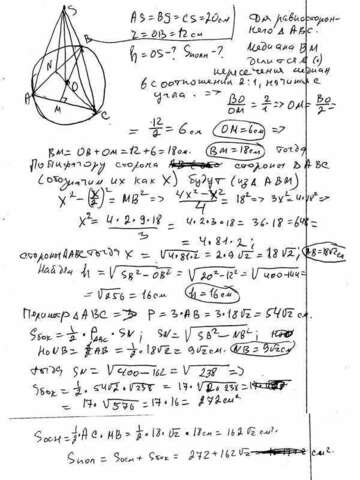 S
B
N
O
A
M
C
AS=BS=CS=20см
r=OB=12см
h=OS-? Sполн-?
Для равносторон-
него ΔABC.
Медиана BM
делится т.O
пересечения медиан
в соотношении 2:1, начиная с
угла. ⇒
BO/OM = 2/1 ⇒ OM = BO/2 =
= 12/2 = 6см OM=6см ⇒
BM=OB+OM=12+6=18см. BM=18см тогда
По Пифагору сторона стороны ΔABC
(обозначим их как X) будут (из ΔABM)
X²-(X/2)² = MB² ⇒ (4X²-X²)/4 = 18² ⇒ 3X²=4·18² ⇒
X² = 4·2·9·18/3 = 4·2·3·18 = 36·18 = 648 =
= 4·81·2;
стороны ΔABC тогда X = √4·81·2 = 2·9√2 = 18√2; AB=18√2см
Найдем h = √SB²-OB² = √20²-12² = √400-144 =
= √256 = 16см h=16см
Периметр ΔABC ⇒ P=3·AB=3·18√2=54√2см.
Sбок = 1/2·PABC·SN; SN = √SB²-NB²;
Но NB = 1/2AB = 1/2·18√2 = 9√2см. NB=9√2см
тогда SN = √400-162 = √238 ⇒
Sбок = 1/2·54√2·√238 = 17·√2·238 =
= 17·√576 = 17·16 = 272см²
Sосн = 1/2·AC·MB = 1/2·18√2·18см = 162√2см².
Sпол = Sосн + Sбок = 272+162√2 см².